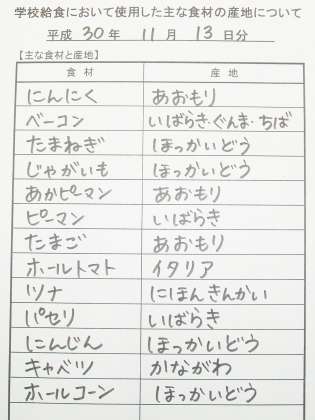 学校給食において使用した主な食材の産地について
平成 30 年 11 月 13 日分
【主な食材と産地】
食材 産地
にんにく あおもり
ベーコン いばらき・ぐんま・ちば
たまねぎ ほっかいどう
じゃがいも ほっかいどう
あかピーマン あおもり
ピーマン いばらき
たまご あおもり
ホールトマト イタリア
ツナ にほんきんかい
パセリ いばらき
にんじん ほっかいどう
キャベツ かながわ
ホールコーン ほっかいどう